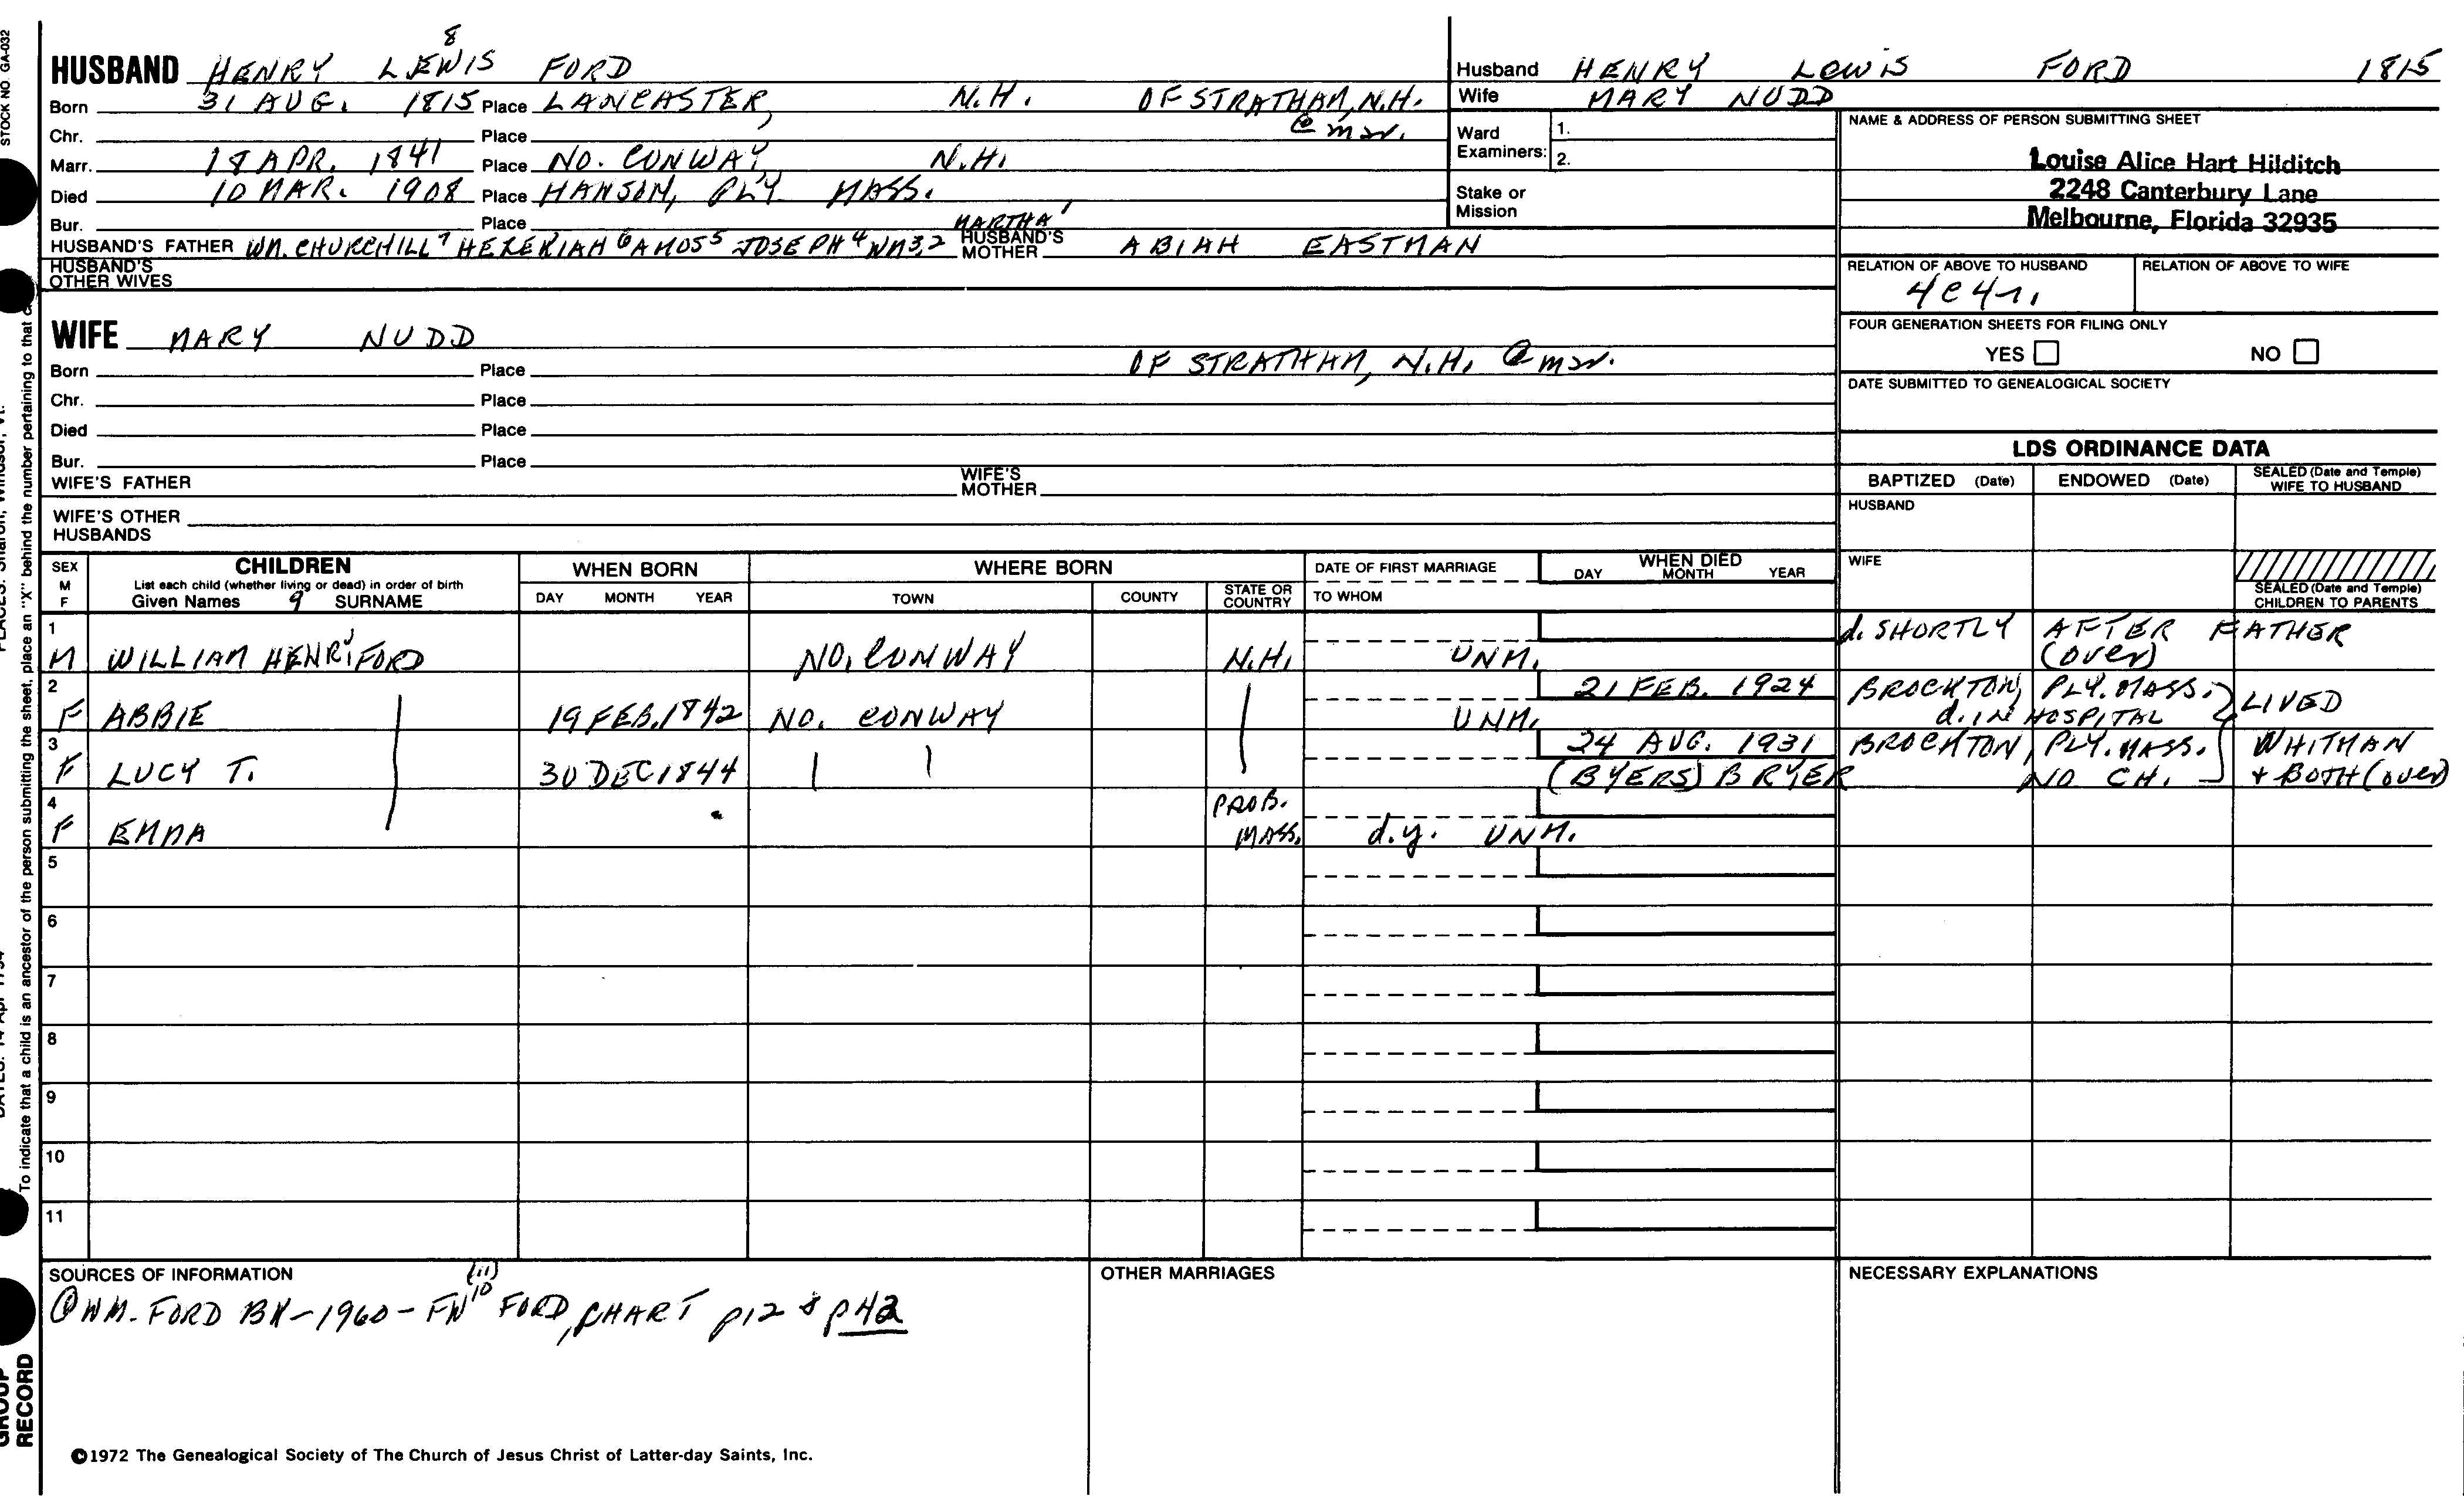 STOCK NO. GA-032
HUSBAND HENRY LEWIS 8 FORD
Born 31 AUG. 1815 Place LANCASTER, N.H. OF STRATHAM, N.H.
Chr. Place @ mar.
Marr. 18 APR. 1841 Place NO. CONWAY, N.H.
Died 10 MAR. 1908 Place HANSON, PLY. MASS.
Bur. Place
HUSBAND'S FATHER WM. CHURCHILL 7 HEZEKIAH 6 AMOS 5 JOSEPH 4 WM 3,2 MARTHA 1 HUSBAND'S MOTHER ABIAH EASTMAN
HUSBAND'S OTHER WIVES
WIFE MARY NUDD
OF STRATHAM, N.H. @ mar.
Born Place
Chr. Place
Died Place
Bur. Place
WIFE'S FATHER WIFE'S MOTHER
WIFE'S OTHER HUSBANDS
Husband HENRY LEWIS FORD 1815
Wife MARY NUDD
Ward Examiners: 1.
2.
Stake or Mission
NAME & ADDRESS OF PERSON SUBMITTING SHEET
Louise Alice Hart Hilditch
2248 Canterbury Lane
Melbourne, Florida 32935
RELATION OF ABOVE TO HUSBAND RELATION OF ABOVE TO WIFE
4c4r.
FOUR GENERATION SHEETS FOR FILING ONLY
YES NO
DATE SUBMITTED TO GENEALOGICAL SOCIETY
LDS ORDINANCE DATA
BAPTIZED (Date) ENDOWED (Date) SEALED (Date and Temple) WIFE TO HUSBAND
HUSBAND
WIFE
SEALED (Date and Temple) CHILDREN TO PARENTS
SEX M F
CHILDREN
List each child (whether living or dead) in order of birth
Given Names 9 SURNAME
WHEN BORN
DAY MONTH YEAR
WHERE BORN
TOWN COUNTY STATE OR COUNTRY
DATE OF FIRST MARRIAGE
TO WHOM
WHEN DIED
DAY MONTH YEAR
1 d. SHORTLY AFTER FATHER
M WILLIAM HENRY FORD NO. CONWAY N.H. UNM. (over)
2 21 FEB. 1924 BROCKTON, PLY. MASS. LIVED
F ABBIE 19 FEB. 1842 NO. CONWAY UNM. d. IN HOSPITAL
3 24 AUG. 1931 BROCKTON, PLY. MASS. WHITMAN
F LUCY T. 30 DEC 1844 (BYERS) BRYER NO CH. + BOTH (over)
4 PROB.
F EMMA MASS. d.y. UNM.
5
6
7
8
9
10
11
SOURCES OF INFORMATION
@ WM. FORD BK-1960 - FN 10 (ii) FORD, CHART p12 & p42
OTHER MARRIAGES
NECESSARY EXPLANATIONS
©1972 The Genealogical Society of The Church of Jesus Christ of Latter-day Saints, Inc.
To indicate that a child is an ancestor of the person submitting the sheet, place an "X" behind the number pertaining to that
GROUP RECORD